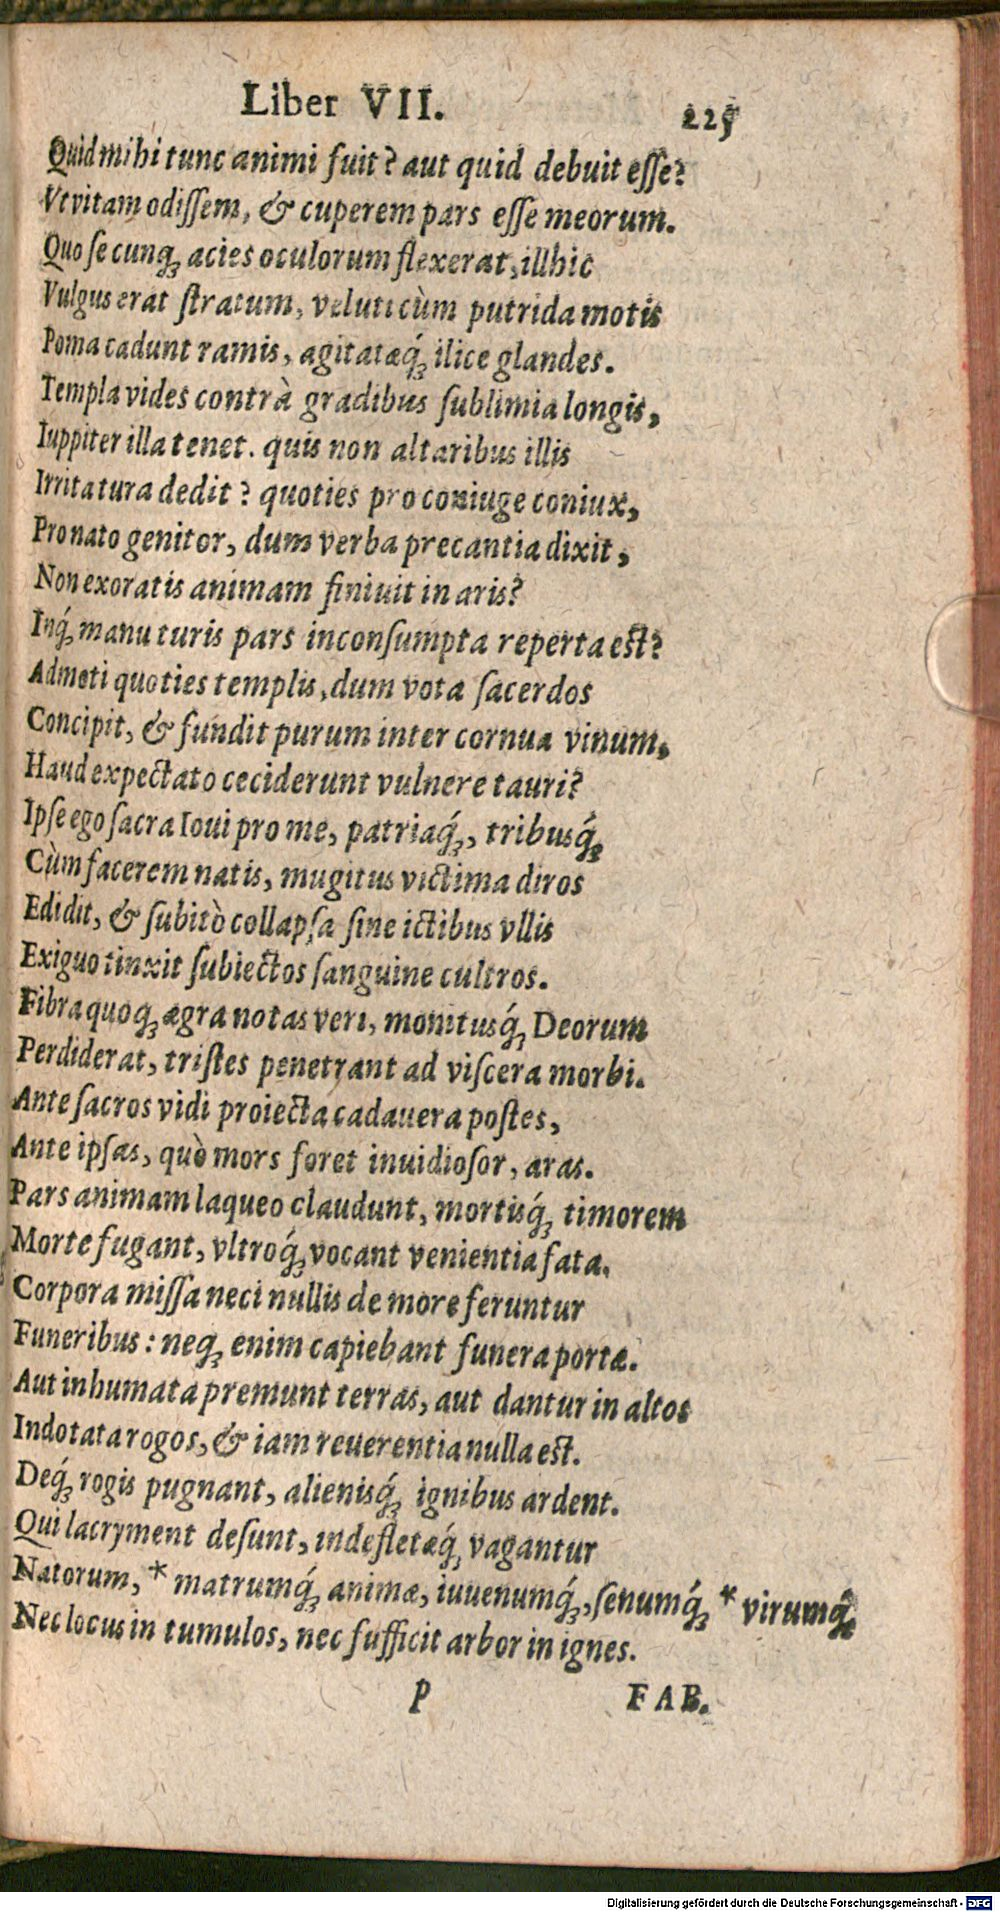 Liber VII. 225
Quid mihi tunc animi fuit? aut quid debuit eſſe?
Vt vitam odiſſem, & cuperem pars eſſe meorum.
Quo ſe cunq; acies oculorum flexerat, illhic
Vulgus erat ſtratum, veluti cùm putrida motis
Poma cadunt ramis, agitatæq́; ilice glandes.
Templa vides contrà gradibus ſublimia longis,
Iuppiter illa tenet. quis non altaribus illis
Irrita tura dedit? quoties pro coniuge coniux,
Pro nato genitor, dum verba precantia dixit,
Non exoratis animam finiuit in aris?
Inq́; manu turis pars inconſumpta reperta eſt?
Admoti quoties templis, dum vota ſacerdos
Concipit, & fundit purum inter cornua vinum,
Haud expectato ceciderunt vulnere tauri?
Ipſe ego ſacra Ioui pro me, patriaq́;, tribusq́;
Cùm facerem natis, mugitus victima diros
Edidit, & ſubitò collapſa ſine ictibus vllis
Exiguo tinxit ſubiectos ſanguine cultros.
Fibra quoq; ægra notas veri, monitusq́; Deorum
Perdiderat, triſtes penetrant ad viſcera morbi.
Ante ſacros vidi proiecta cadauera poſtes,
Ante ipſas, quò mors foret inuidioſor, aras.
Pars animam laqueo claudunt, mortisq́; timorem
Morte fugant, vltroq́; vocant venientia fata.
Corpora miſſa neci nullis de more feruntur
Funeribus: neq; enim capiebant funera portæ.
Aut inhumata premunt terras, aut dantur in altos
Indotata rogos, & iam reuerentia nulla eſt.
Deq́; rogis pugnant, alienisq́; ignibus ardent.
Qui lacryment deſunt, indefletæq́; vagantur
Natorum, * matrumq́; animæ, iuuenumq́;, ſenumq́; * virumq́;
Nec locus in tumulos, nec ſufficit arbor in ignes.
P FAB.
Digitalisierung gefördert durch die Deutsche Forschungsgemeinschaft - DFG